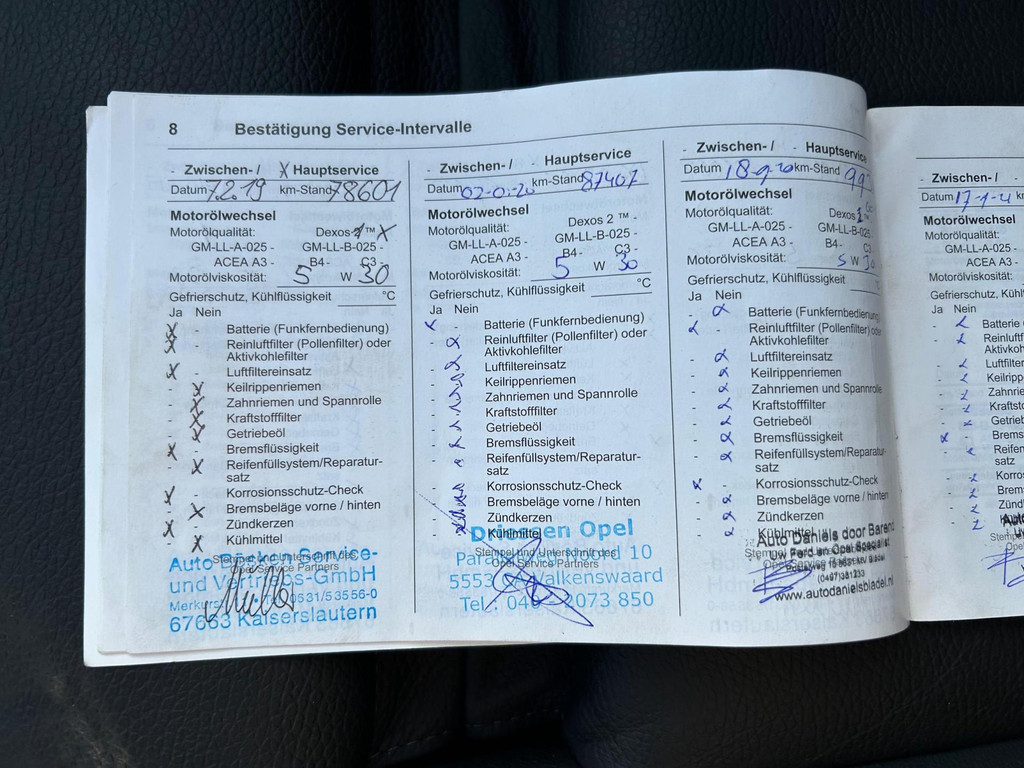 8 Bestätigung Service-Intervalle
- Zwischen- / X Hauptservice
Datum 7.2.19 km-Stand 78601
Motorölwechsel
Motorölqualität: Dexos 2 ™ X
GM-LL-A-025 - GM-LL-B-025 -
ACEA A3 - B4- C3 -
Motorölviskosität: 5 W 30
Gefrierschutz, Kühlflüssigkeit °C
Ja Nein
X - Batterie (Funkfernbedienung)
X - Reinluftfilter (Pollenfilter) oder
Aktivkohlefilter
X - Luftfiltereinsatz
- X Keilrippenriemen
- X Zahnriemen und Spannrolle
- X Kraftstofffilter
- X Getriebeöl
X - Bremsflüssigkeit
- X Reifenfüllsystem/Reparatur-
satz
X - Korrosionsschutz-Check
- X Bremsbeläge vorne / hinten
X - Zündkerzen
- X Kühlmittel
Stempel und Unterschrift des
Opel Service Partners
Auto Service-
und Vertriebs-GmbH
0631/53556-0
67663 Kaiserslautern
- Zwischen- / - Hauptservice
Datum km-Stand 87407
Motorölwechsel
Motorölqualität: Dexos 2 ™ -
GM-LL-A-025 - GM-LL-B-025 -
ACEA A3 - B4- C3 -
Motorölviskosität: 5 W 30
Gefrierschutz, Kühlflüssigkeit °C
Ja Nein
Batterie (Funkfernbedienung)
Reinluftfilter (Pollenfilter) oder
Aktivkohlefilter
Luftfiltereinsatz
Keilrippenriemen
Zahnriemen und Spannrolle
Kraftstofffilter
Getriebeöl
Bremsflüssigkeit
Reifenfüllsystem/Reparatur-
satz
Korrosionsschutz-Check
Bremsbeläge vorne / hinten
Zündkerzen
Kühlmittel
Stempel und Unterschrift des
Opel Service Partners
Driessen Opel
10
5553 Valkenswaard
Tel.: 040 2073 850
- Zwischen- / - Hauptservice
Datum 18-9-20 km-Stand 99
Motorölwechsel
Motorölqualität: Dexos
GM-LL-A-025 - GM-LL-B-025
ACEA A3 - B4- C3
Motorölviskosität: 5 W 30
Gefrierschutz, Kühlflüssigkeit °C
Ja Nein
Batterie (Funkfernbedienung)
Reinluftfilter (Pollenfilter) oder
Aktivkohlefilter
Luftfiltereinsatz
Keilrippenriemen
Zahnriemen und Spannrolle
Kraftstofffilter
Getriebeöl
Bremsflüssigkeit
Reifenfüllsystem/Reparatur-
satz
Korrosionsschutz-Check
Bremsbeläge vorne / hinten
Zündkerzen
Kühlmittel
Auto Daniëls door Barend
Uw Ford en Opel Specialist
(0497)381233
www.autodanielsbladel.nl
- Zwischen- / -
Datum 17-1-21 km-
Motorölwechsel
Motorölqualität:
GM-LL-A-025 -
ACEA A3 -
Motorölviskosität:
Gefrierschutz, Kühlfl
Ja Nein
Batterie
Reinluft
Aktivkoh
Luftfilter
Keilripp
Zahnrie
Kraftsto
Getrieb
Brems
Reifen
satz
Korros
Brems
Zündk